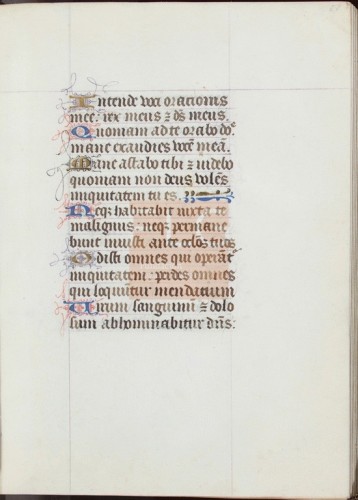 Intende voci orationis
mee: rex meus ⁊ ds̄ meus.
Quoniam ad te orabo dn̄e
mane exaudies vocē meā.
Mane astabo tibi ⁊ videbo
quoniam non deus volēs
iniquitatem tu es.
Neqꝫ habitabit iuxta te
malignus: neqꝫ permane
bunt iniusti ante oclōs tuos
Odisti omnes qui operāt᷑
iniquitatem: perdes omnes
qui loquūtur mendatium
Uirum sanguinū ⁊ dolo
sum abhominabitur dn̄s: